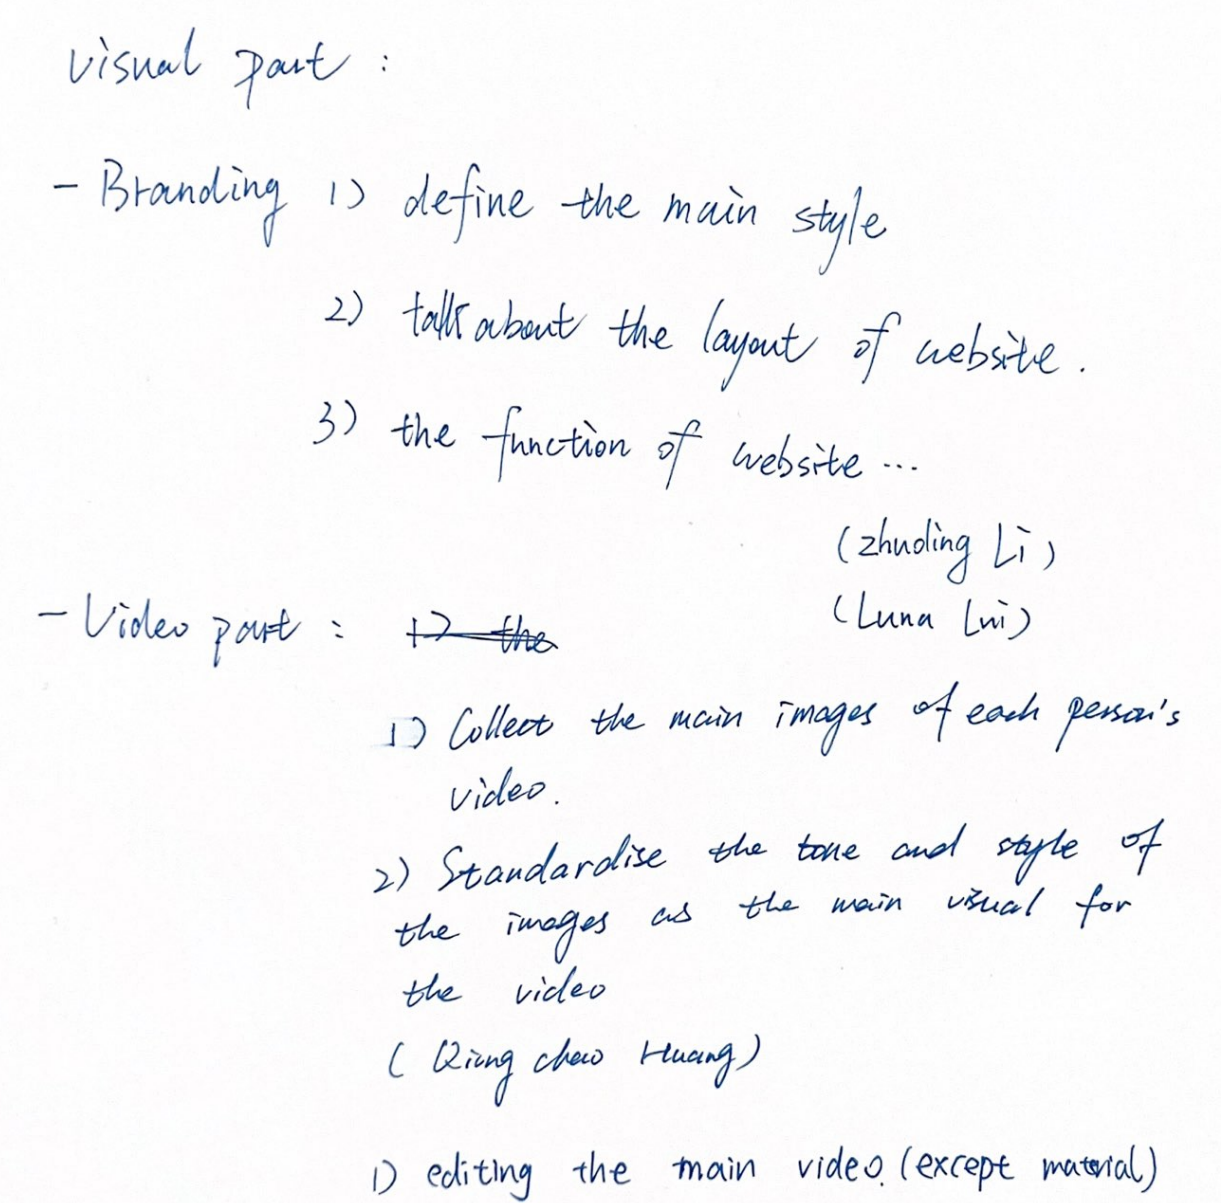 visual part :
- Branding 1) define the main style
2) talk about the layout of website.
3) the function of website ...
(zhuoling Li)
(Luna Lui)
- Video part : 1) the
1) Collect the main images of each person's
video.
2) Standardise the tone and style of
the images as the main visual for
the video
( Qiang chao Huang)
1) editing the main video. (except material)